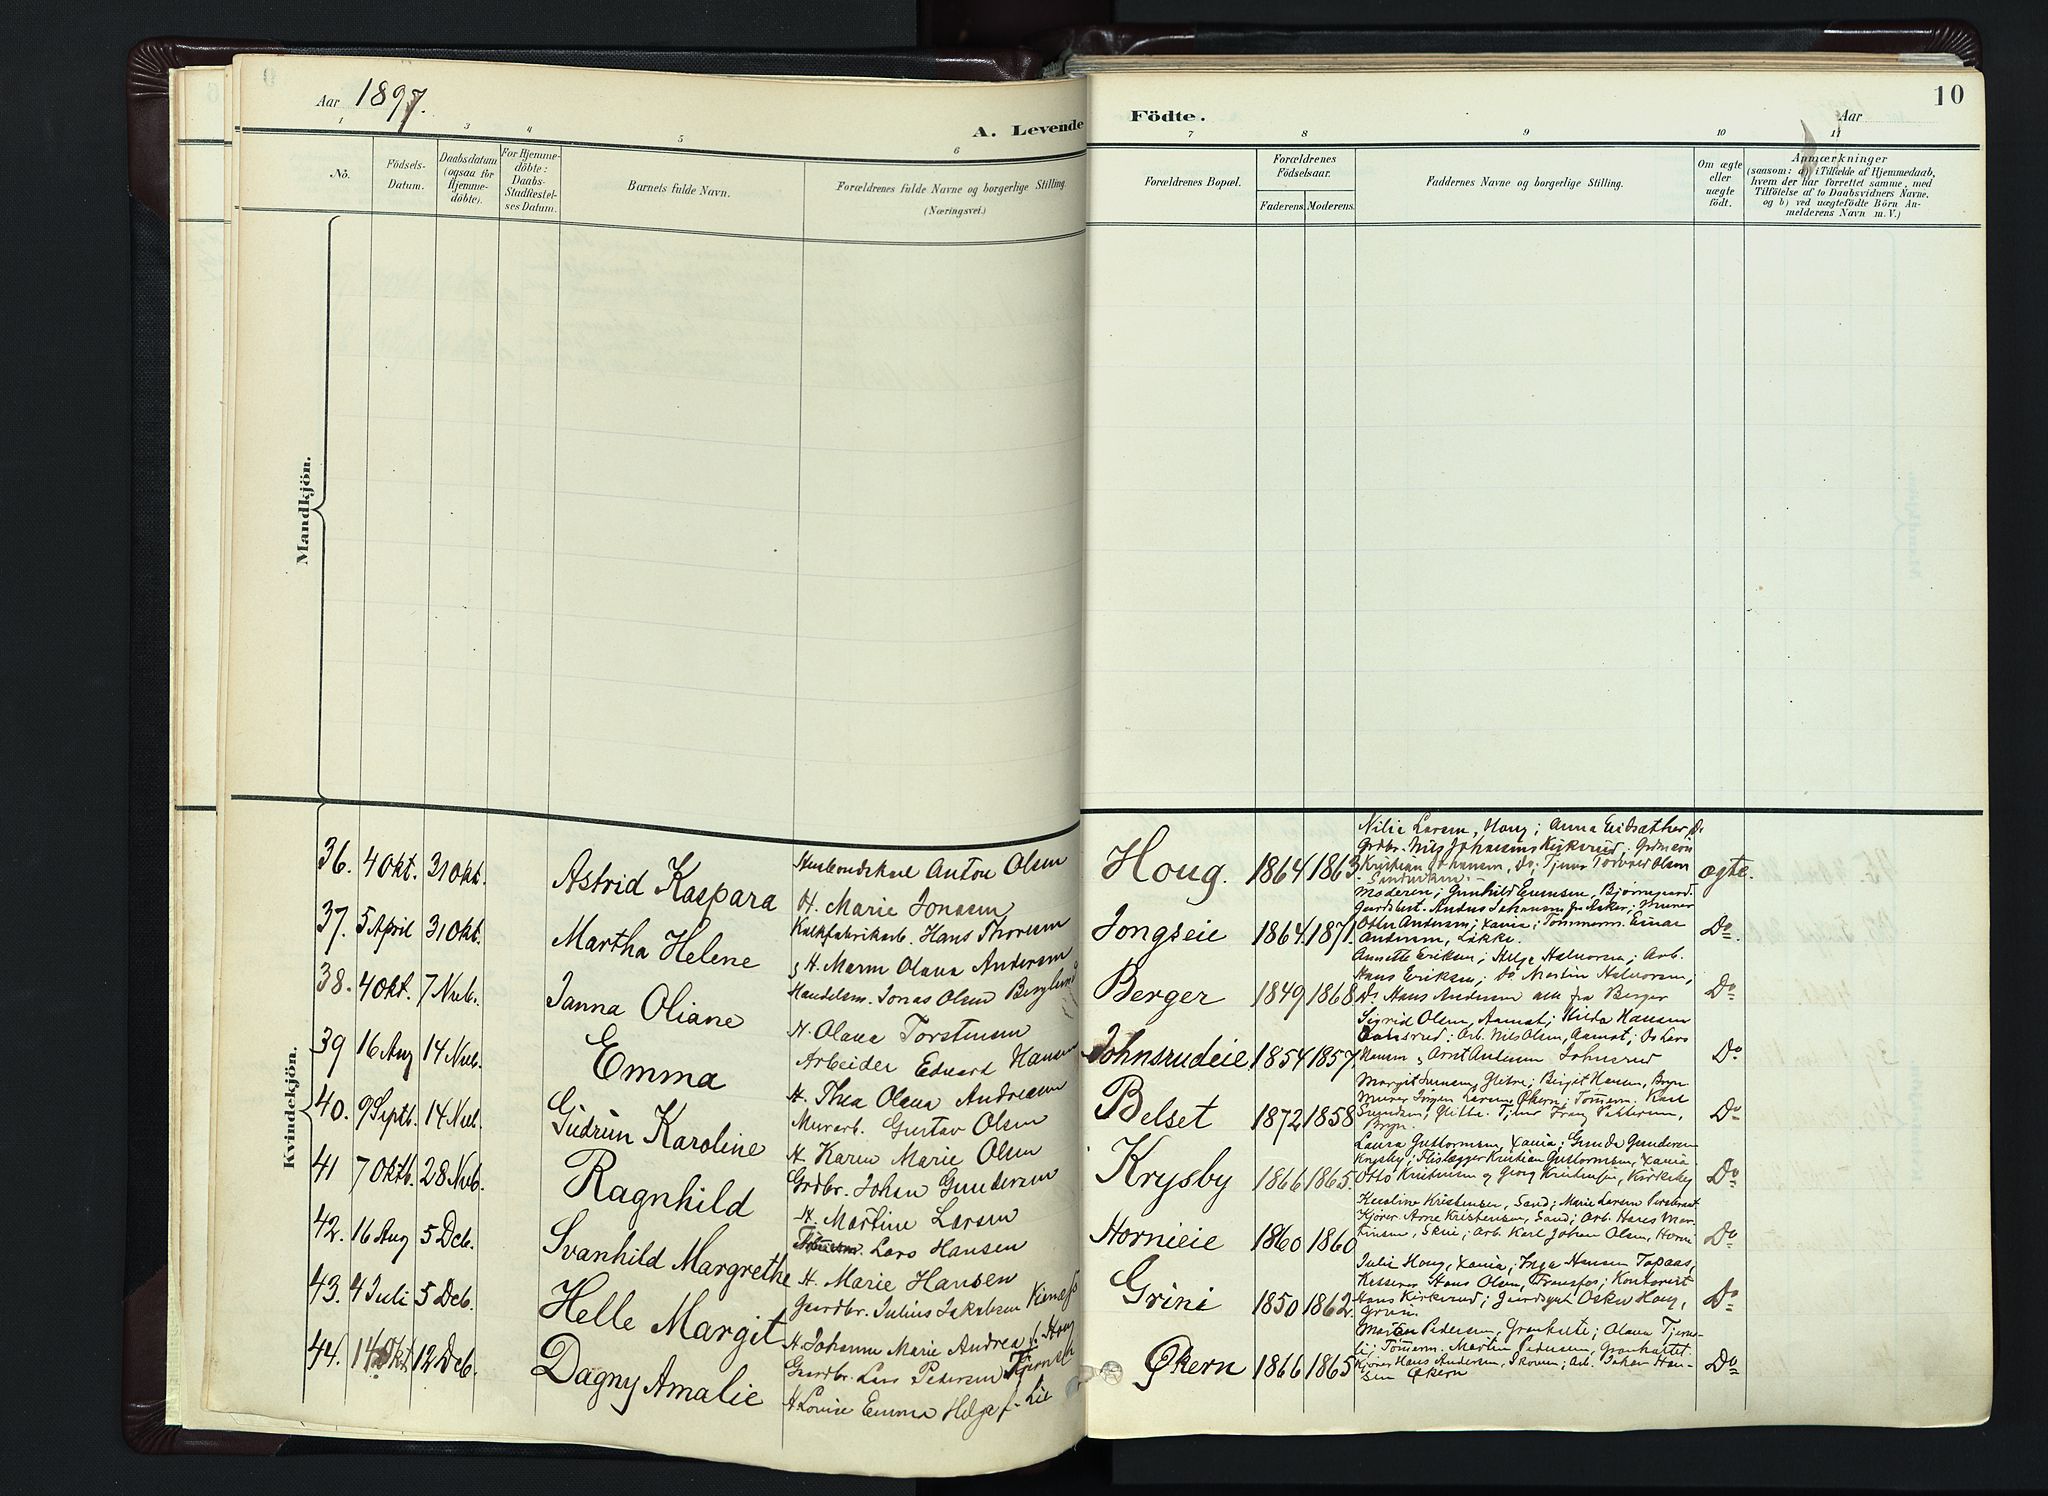 Aar 1897.
A. Levende Födte.
Aar
10
1 3 4 5 6 7 8 9 10 11
No.
Födsels-Datum.
Daabsdatum (ogsaa for Hjemme-döbte).
For Hjemme-döbte: Daabs-Stadfæstel-ses Datum.
Barnets fulde Navn.
Forældrenes fulde Navne og borgerlige Stilling.
(Næringsvei.)
Forældrenes Bopæl.
Forældrenes Födselsaar.
Faderens. Moderens.
Faddernes Navne og borgerlige Stilling.
Om ægte eller uægte födt.
Anmærkninger
(saasom: a) i Tilfælde af Hjemmedaab,
hvem der har forrettet samme, med
Tilföielse af to Daabsvidners Navne,
og b) ved uægtefödte Börn An-
melderens Navn m. V.)
Mandkjön.
Kvindekjön.
36. 4 Okt. 31 Okt. Astrid Kaspara
Anton Olsen
H. Marie Jonsen
Houg. 1864 1863
Nilia Larsen, Houg; Anna
Grdbr. Nils Johansens
Kristian Johansen, Do; Tjener Torvald Olsen
ægte.
37. 5 April 31 Okt. Martha Helene
Kalkfabrikarb. Hans Thoresen
H. Maren Olava Andersen
Jongseie 1864 1871.
Moderen; Gunhild Evensen, Bjørnegaard.
Otter Andersen; Xania; Tømmerm. Einar
Andersen, Løkke.
Do.
38. 4 Okt. 7 Nvb. Janna Oliane
Handelsm. Jonas Olsen Berglund
H. Olava Torstensen
Berger 1849 1868
Annette Eriksen; Helge Halvorsen; Arb.
Hans Eriksen; Do Martin Halvorsen,
Do Hans Andersen alle fra Berger
Do
39 16 Aug 14 Nvb. Emma
Arbeider Edvard Hansen
H. Thea Olava Andresen
Johnsrudeie 1854 1857
Sigrid Olsen, Aamot; Hilda Hansen
Arb. Nils Olsen, Aamot; Do Lars
Hansen, Arnt Andersen Johnsrud
Do
40. 9 Septb. 14 Nvb. Gudrun Karoline
Murarb. Gustav Olsen
H. Karen Marie Olsen
Belset 1872 1858
Margit Svensen, Glitre; Birgit Hansen, Bryn
Murer Jørgen Larsen, Økern; Tømerm. Karl
Svendsen, Glitre. Tjener Franz Pettersen,
Bryn.
Do
41 7 Oktb. 28 Nvb. Ragnhild
Grdbr. Johan Gundersen
H. Martine Larsen
Krysby 1866 1865
Laura Guttormsen, Xania; Gunda Gundersen
Krysby; Flislægger Kristian Guttormsen, Xania.
Otto Kristensen og Georg Kristensen, Kirkeby
Do
42. 16 Aug 5 Dcb. Svanhild Margrethe
Lars Hansen
H. Marie Hansen
Hornieie 1860 1860
Karoline Kristensen, Sand; Marie Larsen
Kjører Arne Kristensen, Sand; Arb. Hans Mar-
tinsen, Skui; Arb. Karl Johan Olsen, Horni
Do
43. 4 Juli 5 Dcb. Helle Margit
Gaardbr. Julius Jakobsen
H. Johanne Marie Andrea f. Houg
Grini 1850 1862
Julie Houg, Xania; Inga Hansen Topaas,
Hans Olsen, Fransfos; Kontorist
Hans Kirkerud; Oskar Houg,
Grini.
Do
44. 14 Okt 12 Dcb. Dagny Amalie
Gaardbr. Lars Pedersen
H Louise Emma Helga f. Lie
Økern 1866 1865
Pedersen, Olava Tjerns-
li; Tømerm. Martin Pedersen,
Kjører Hans Andersen, Skoven; Arb. Johan Han-
sen Økern
Do